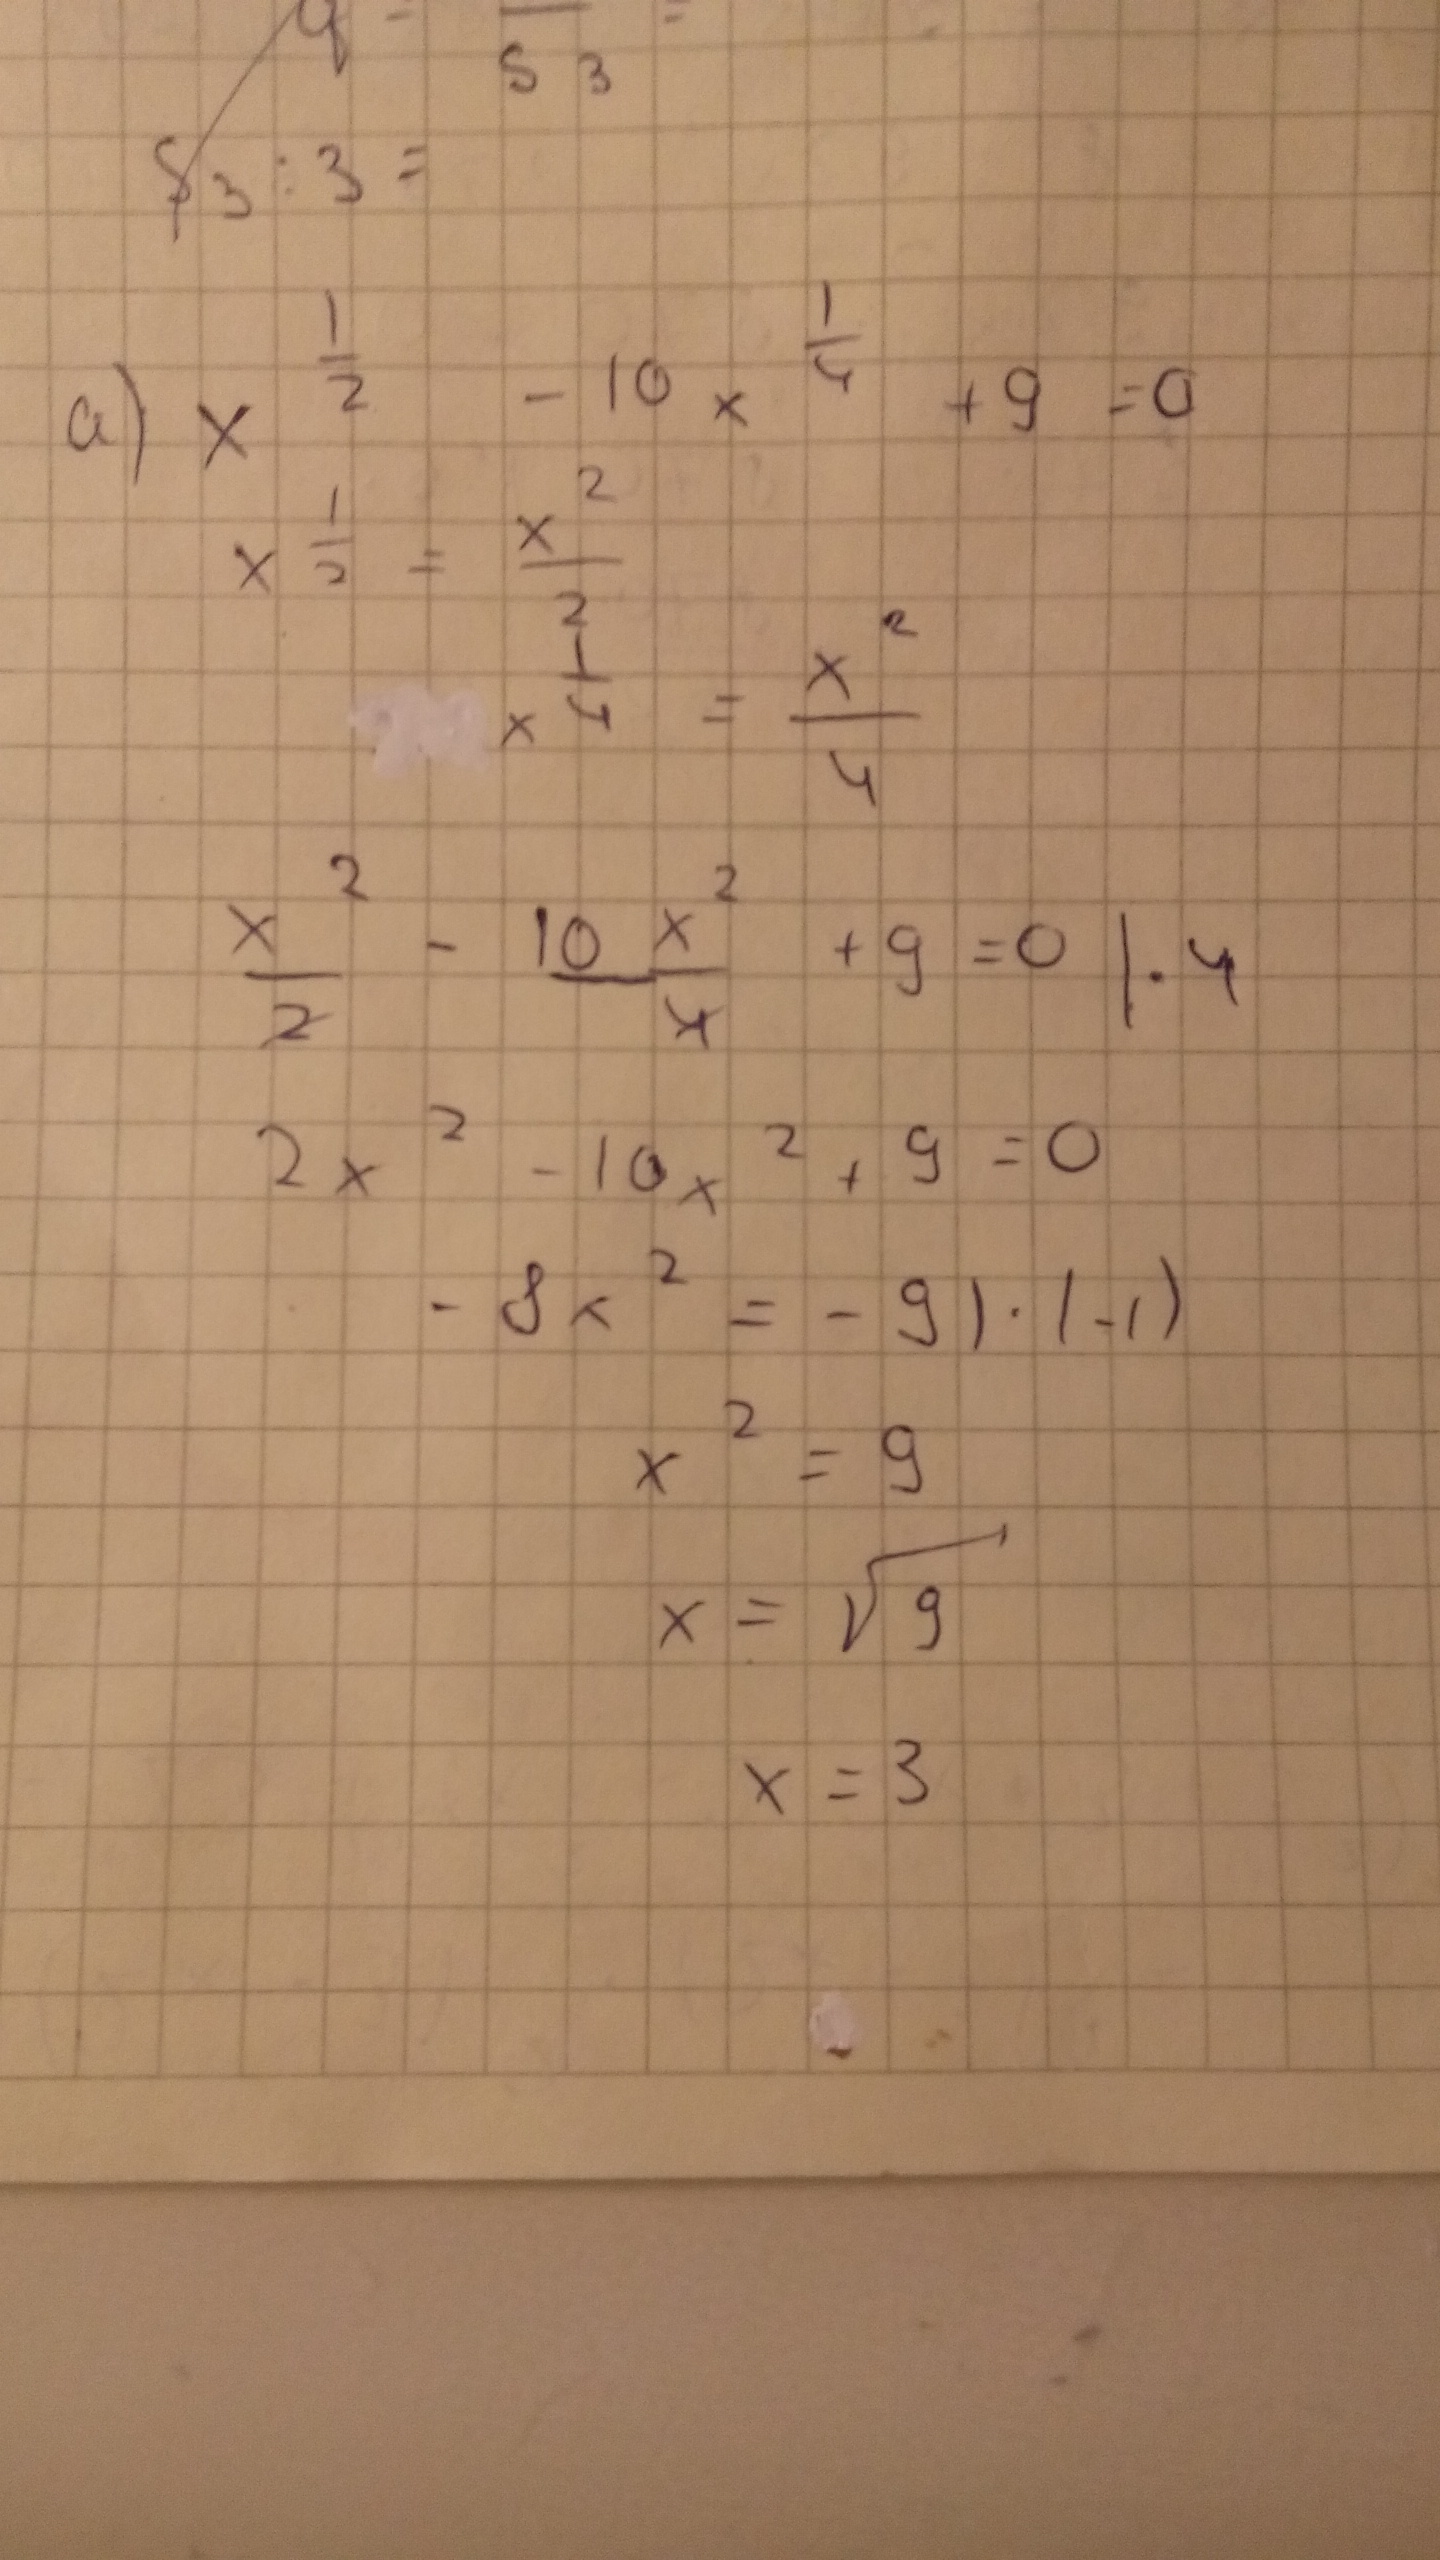 q = — / S3 =
S3 : 3 =
a) x^(1/2) - 10x^(1/4) + 9 = 0
x^(1/2) = x^2/2
x^(1/4) = x^2/4
x^2/2 - 10x^2/4 + 9 = 0 | · 4
2x^2 - 10x^2 + 9 = 0
- 8x^2 = - 9 | · (-1)
x^2 = 9
x = √9
x = 3